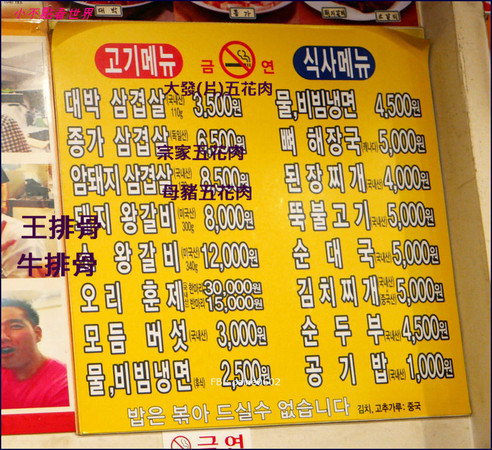 小不點看世界
고기메뉴
금 연
식사메뉴
대박 삼겹살 (국내산) 110g 3,500원
大發(片)五花肉
종가 삼겹살 (독일산) 6,500원
宗家五花肉
암돼지 삼겹살 (국내산) 8,500원
母豬五花肉
돼지 왕갈비 (미국산) 300g 8,000원
王排骨
왕갈비 (미국산) 340g 12,000원
牛排骨
오리 훈제 한마리 30,000원 반마리 15,000원
모듬 버섯 (국내산) 3,000원
물,비빔냉면 (후식) 2,500원
물,비빔냉면 4,500원
뼈 해장국 (캐나다) 5,000원
된장찌개 (국내산) 4,000원
뚝불고기 (국내산) 5,000원
순대국 (국내산) 5,000원
김치찌개 (국내산) (중국산) 5,000원
순두부 (국내산) 4,500원
공기밥 (국내산) 1,000원
밥은 볶아 드실수 없습니다 김치, 고추가루: 중국
금연